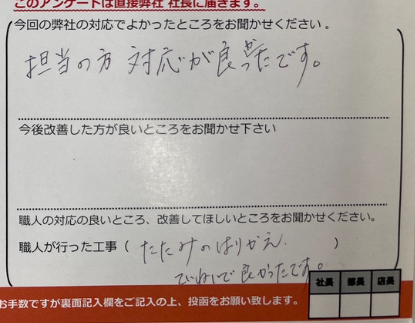 このアンケートは直接弊社 社長に届きます。
今回の弊社の対応でよかったところをお聞かせください。
担当の方 対応が良かったです。
今後改善した方が良いところをお聞かせ下さい
職人の対応の良いところ、改善してほしいところをお聞かせください。
職人が行った工事（ たたみのはりかえ. ）
ていねいで良かったです。
社長 部長 店長
お手数ですが裏面記入欄をご記入の上、投函をお願い致します。